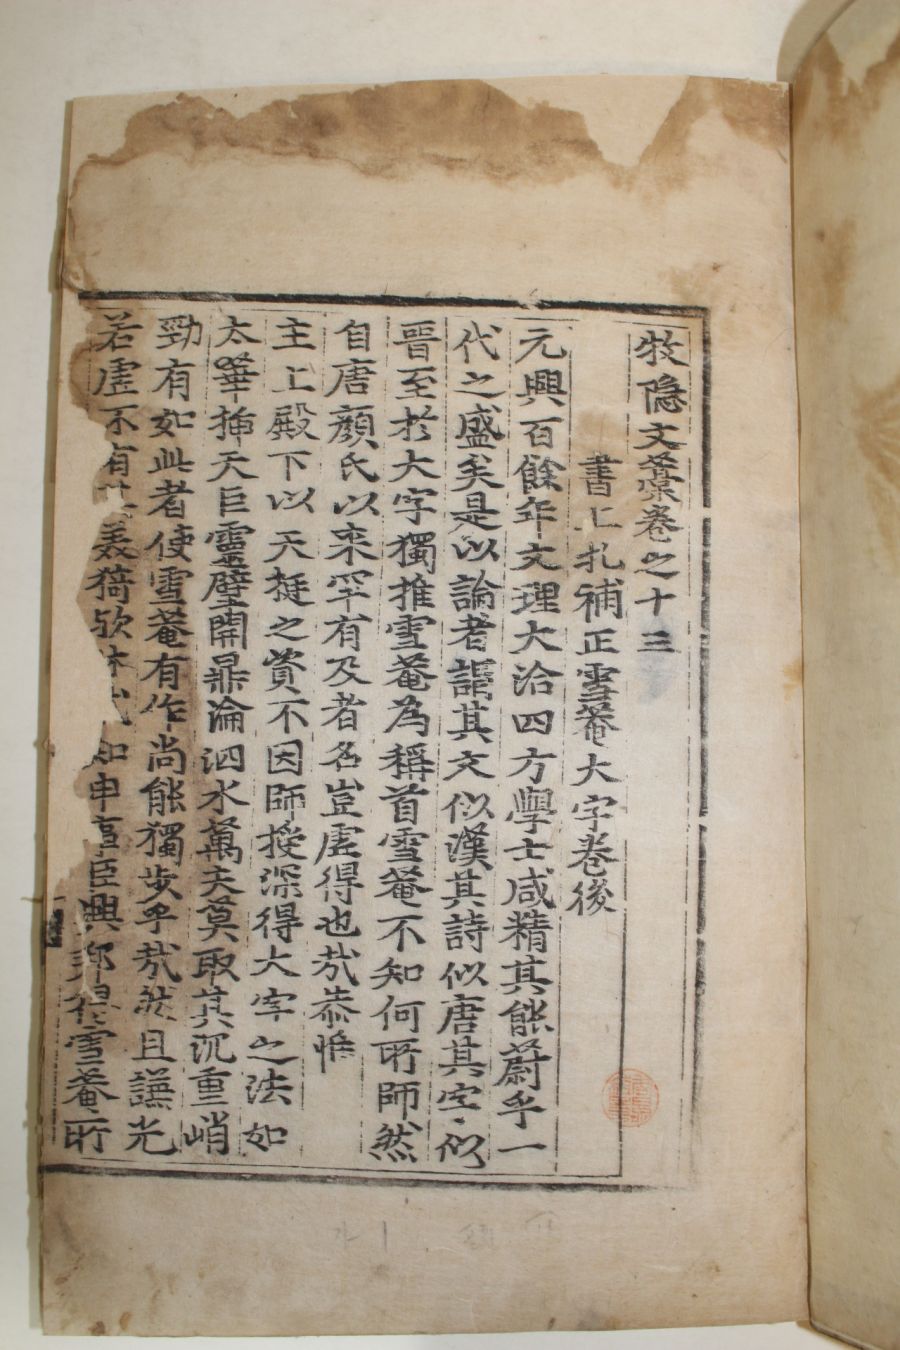 牧隱文藁卷之十三
書上札補正雪菴大字卷後
元興百餘年文理大洽四方學士咸精其能蔚乎一
代之盛矣是以論者謂其文似漢其詩似唐其字似
晉至於大字獨推雪菴爲稱首雪菴不知何所師然
自唐顔氏以來罕有及者名豈虛得也㢤恭惟
主上殿下以天挺之資不因師授深得大字之法如
太華揷天巨靈擘開鼎淪泗水萬夫莫取其沉重峭
勁有如此者使雪菴有作尚能獨步乎㢤然且謙光
若虛不有其義猗歟休㢤知申事臣興邦得雪菴所